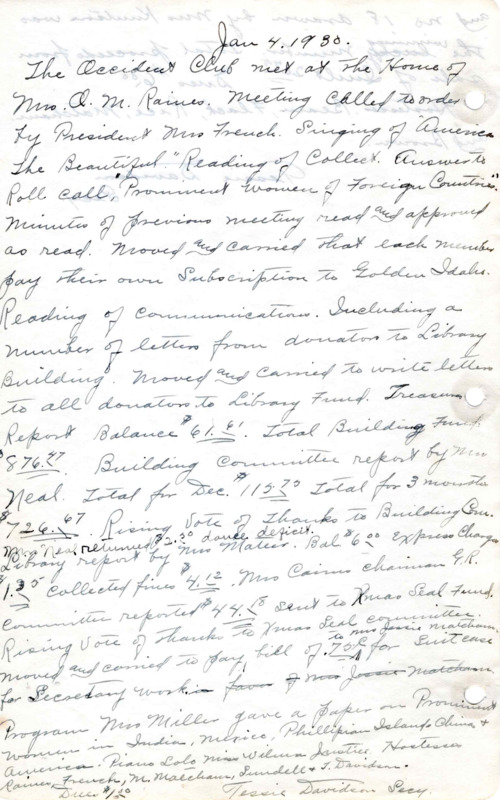 Jan 4. 1930.
The Occident Club met at the Home of
Mrs. O. M. Raines. Meeting called to order
by President Mrs French. Singing of "America
The Beautiful" Reading of Collect. Answer to
Roll call, "Prominent Women of Foreign Countries".
Minutes of previous meeting read and approved
as read. Moved and carried that each member
pay their own Subscription to Golden Idaho.
Reading of Communications. Including a
number of letters from donators to Library
Building. Moved and carried to write letters
to all donators to Library Fund. Treasurers
Report Balance $61.61. Total Building Fund
$876.47. Building Committee report by Mrs
Neal. Total for Dec. $115.75 Total for 3 months
$726.67 Rising Vote of Thanks to Building Com.
Mrs Neal returned $2.30 dance deficit.
Library report by Mrs Mateer. Bal $6.00 Express Charges
$1.35 collected fines $4.12. Mrs Cairns chairman G.R.
Committee reported $44.18 sent to Xmas Seal Fund.
Rising Vote of thanks to Xmas Seal committee.
to Mrs Jessie Matcham
Moved and carried to pay bill of .75¢ for Suit case
for Secretary work in favor of Mrs Jessie Matcham.
Program Mrs Miller gave a paper on Prominent
Women in India, Mexico, Phillipian Islands China &
America. Piano Solo Miss Wilma Hostesses
Raines, French, M. Matcham, Lundell & T. Davidson.
Dues $1.50
Tessie Davidson Secy.